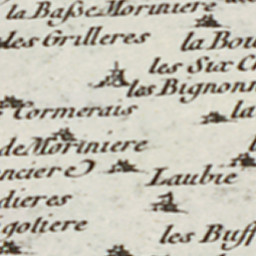 la Baſse Moriniere
des Grilleres
la Bou
les Six Ch
les Bignonn
Cormerais
la
de Moriniere
ncier
Laubie
dieres
gotiere
les Buff